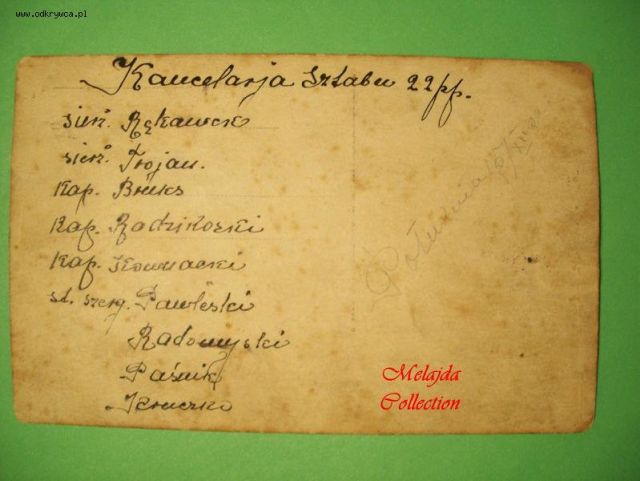 www.odkrywca.pl
Kancelarja Sztabu 22 pp.
sierż. Rękawek
sierż. Trojan.
Kap. Bruks
Kap. Radzikoski
Kap. Słowacki
st. szerg. Pawleski
Radomyski
Paśnik
Melajda
Collection